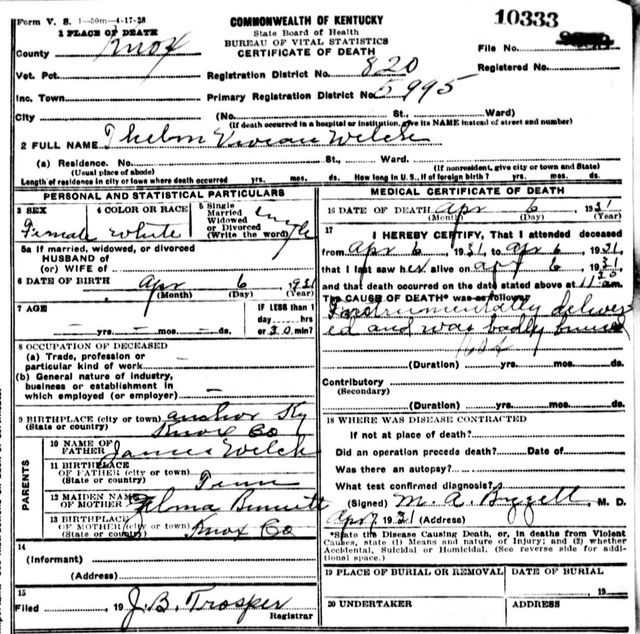 Form V. S. 1—50m—4-17-28
COMMONWEALTH OF KENTUCKY
State Board of Health
BUREAU OF VITAL STATISTICS
CERTIFICATE OF DEATH
10333
1 PLACE OF DEATH
County Knox
File No.
Vot. Pct.
Registration District No. 820
Registered No.
Inc. Town
Primary Registration District No. 5995
City (No. St., Ward)
(If death occurred in a hospital or institution, give its NAME instead of street and number)
2 FULL NAME Thelma Vivian Welch
(a) Residence. No. St., Ward.
(Usual place of abode) (If nonresident, give city or town and State)
Length of residence in city or town where death occurred yrs. mos. ds. How long in U. S., if of foreign birth? yrs. mos. ds.
PERSONAL AND STATISTICAL PARTICULARS
3 SEX Female
4 COLOR OR RACE White
5 Single Married Widowed or Divorced (Write the word) Single
5a If married, widowed, or divorced
HUSBAND of
(or) WIFE of
6 DATE OF BIRTH Apr 6, 1931
(Month) (Day) (Year)
7 AGE
IF LESS than 1
day hrs
— yrs. — mos. — ds. or 30 min?
8 OCCUPATION OF DECEASED
(a) Trade, profession or
particular kind of work
(b) General nature of industry,
business or establishment in
which employed (or employer) —
9 BIRTHPLACE (city or town) Anchor Ky
(State or country) Knox Co
PARENTS
10 NAME OF
FATHER James Welch
11 BIRTHPLACE
OF FATHER (city or town)
(State or country) Tenn
12 MAIDEN NAME
OF MOTHER
13 BIRTHPLACE
OF MOTHER (city or town)
(State or country) Knox Co
14
(Informant)
(Address)
15
Filed , 19 J. B. Trosper
Registrar
MEDICAL CERTIFICATE OF DEATH
16 DATE OF DEATH Apr 6 1931
(Month) (Day) (Year)
17 I HEREBY CERTIFY, That I attended deceased
from Apr 6, 1931, to Apr 6, 1931,
that I last saw her alive on Apr 6, 1931
and that death occurred on the date stated above at 11:20 am.
The CAUSE OF DEATH* was as follows:
Instrumentally deliver
ed and was badly bruised
(Duration) yrs. mos. ds.
Contributory
(Secondary)
(Duration) yrs. mos. ds.
18 WHERE WAS DISEASE CONTRACTED
If not at place of death?
Did an operation precede death? Date of
Was there an autopsy?
What test confirmed diagnosis?
(Signed) M. A. , M. D.
Apr 7 1931 (Address)
*State the Disease Causing Death, or, in deaths from Violent
Causes, state (1) Means and nature of Injury; and (2) whether
Accidental, Suicidal or Homicidal. (See reverse side for addi-
tional space.)
19 PLACE OF BURIAL OR REMOVAL
DATE OF BURIAL
, 19
20 UNDERTAKER
ADDRESS